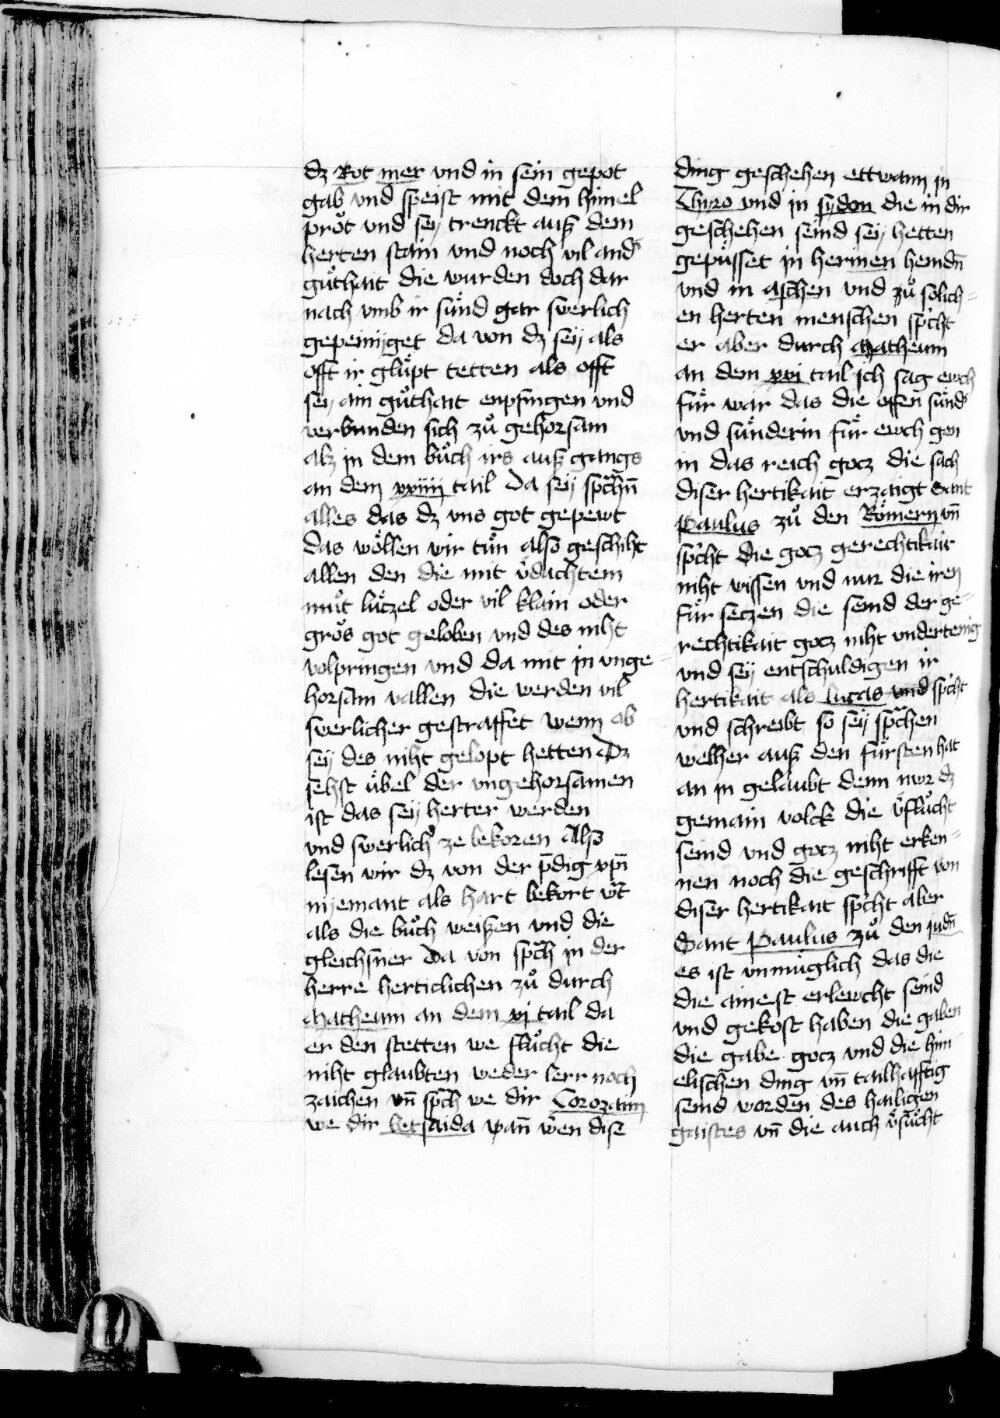 dz Rot mer vnd in sein gepot
gab vnd speist mit dem himel
prot vnd sey trenckt auß dem
herten stain vnd noch vil ands
gůthait die wurden doch dar
nach vmb ir sünd gar swerlich
gepeinyget da von dz sey als
offt ir glüpt tetten als offt
sey ain gůthait enpfingen vnd
verbunden sich zů gehorsam
alz in dem bůch irs auß gangs
an dem xxiiij tail Da sey sprachn̄
alles das dz vns got gepewt
das wöllen wir tůn also geschiht
allen den die mit v̄dachtem
můt lüczel oder vil klain oder
gros got geloben vnd des niht
volpringen vnd da mit in vnge-
horsam vallen die werden vil
swerlicher gestraffet wenn ob
sey des niht gelopt hetten Dz
sehst übel der vngehorsamen
ist das sey herter werden
vnd swerlichs ze bekoren Also
lesen wir dz von der p̄dig xp̄ī
nyemant als hart bekort w̄t
als die bůch weißen vnd die
gleichsner Da von sp̄ch in der
herre herticlichen zů durch
Matheum an dem xj tail da
er den stetten we flůcht die
niht glaubten weder lerr noch
zaichen vn̄ sp̄ch we dir Corozaim
we dir betsaida wan̄ w̄en dise
ding geschehen ettwann in
Thiro vnd in sydon die in dir
geschehen seind sey hetten
gepüsset in herinen hemdn̄
vnd in aschen vnd zů solich-
en herten menschen sp̄cht
er aber durch Matheum
an dem xxi tail ich sag ewch
für war das die offen sünds
vnd sünderin für ewch gen
in das reich gocz die sach
diser hertikait erzaigt Sant
Paulus zů den Römern vn̄
sp̄cht die gocz gerechtikait
niht wissen vnd nur die iren
für seczen die seind der ge-
rechtikait gocz niht vndertenig
vnd sey entschuldigen ir
hertikait als lucas vnd sp̄cht
vnd schreibt so sey sp̄chen
welher auß den fürsten hat
an in gelaubt denn nwr dz
gemain volck die v̄flůcht
seind vnd gocz niht erken-
nen noch die geschrifft von
diser hertikait sp̄cht aber
Sant Paulus zů den judn̄
es ist vnmüglich das die
die ainest erlewcht seind
vnd gekost haben die gaben
die gabe gocz vnd die him-
elischen ding vn̄ tailhafftig
seind worden des hailigen
gaistes vn̄ die auch v̄sůcht